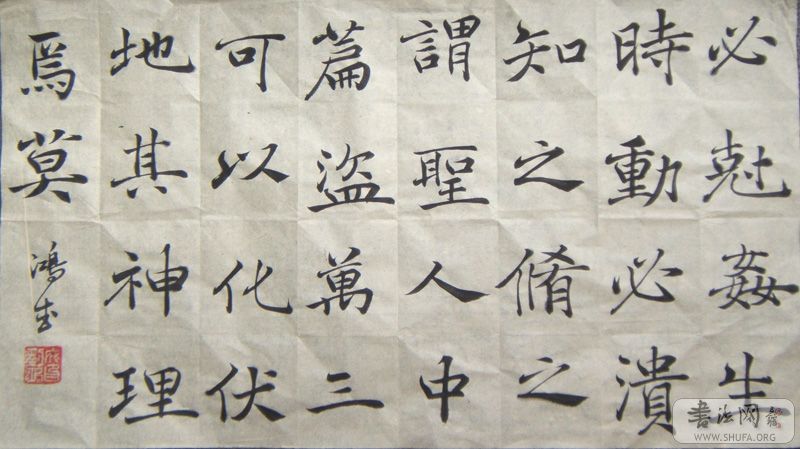 必尅姦生
時動必潰
知之脩之
謂聖人中
篇盜萬三
可以化伏
地其神理
焉莫
鴻
書法网
WWW.SHUFA.ORG